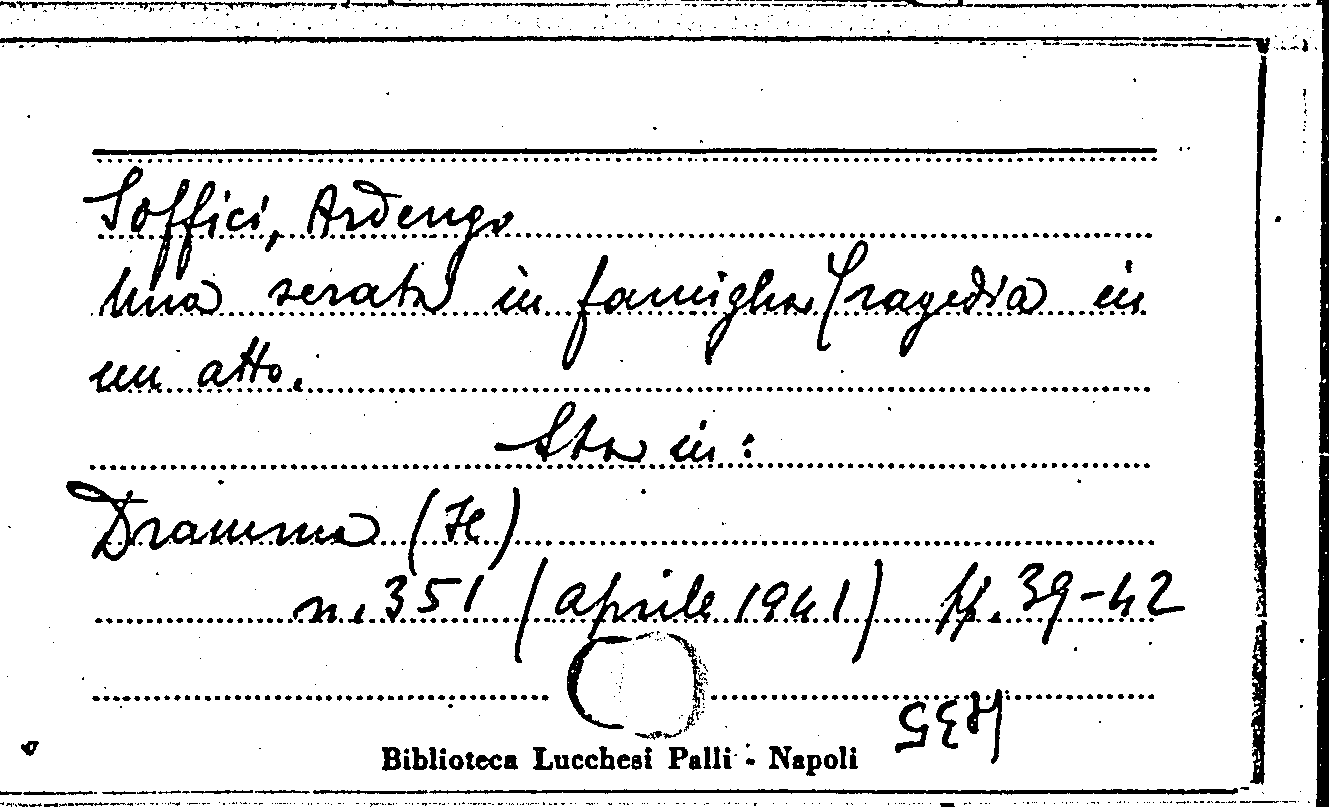 Soffici, Ardengo
Una serata in famiglia Tragedia in
un atto.
Sta in:
Dramma (Il)
n. 351 (aprile 1941) pp. 39-42
Biblioteca Lucchesi Palli - Napoli